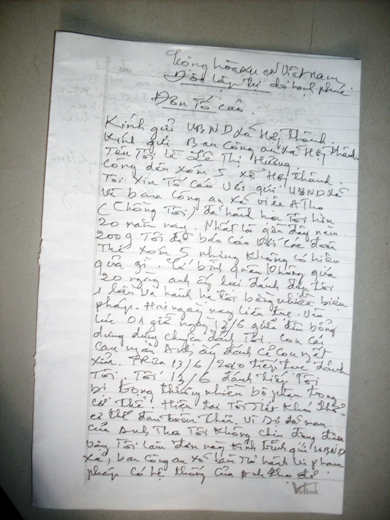 Cộng hòa xã CN Việt Nam
Độc lập Tự do hạnh phúc
Đơn Tố cáo
Kính gửi UBND xã Hội thành
Kính gửi Ban Công an xã Hội thành
Tên Tôi là Lê Thị Hường
Công dân xóm 5 xã Hội thành
Tôi xin Tố cáo với quí UBND xã
và ban công an xã việc A Tho
(Chồng Tôi) đã hành hạ Tôi hơn
20 năm nay. Nhất là gần đây năm
2009 Tôi đã báo cáo với các đoàn
Thể xóm 5 nhưng không có hiệu
quả gì. bình quân không quá
20 ngày anh ấy lại đánh đập tôi
1 lần và hành hạ tôi bằng nhiều biện
pháp. Hai ngày nay liên tục. Vào
lúc 01 giờ ngày 12/6 giữa đêm bỗng
dưng dựng dậy đánh Tôi. con cái
can ngăn Anh ấy đánh cả con mặt
13/6/2010 tiếp tục đánh
Tôi. Tối 13/6 đánh tiếp Tôi
bị thương nhiều bộ phận trong
cơ thể. Hiện tại Tôi rất khó thở
cả thể đau toàn thân. Vì vậy
của anh Tho Tôi không chịu đựng được
vậy Tôi làm đơn này kính trình quí UBND
xã, ban công an xã hành vi phạm
pháp có hệ thống của anh Tho để